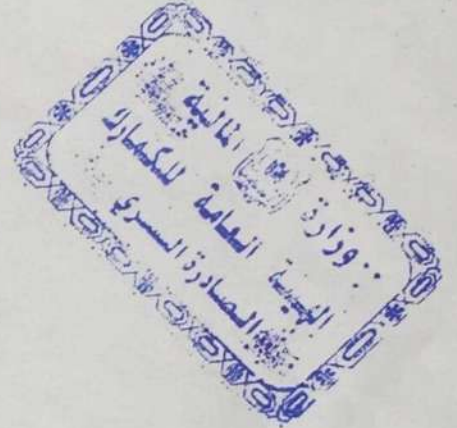 وزارة المالية
الهيئة العامة للكمارك
الصادرة السري